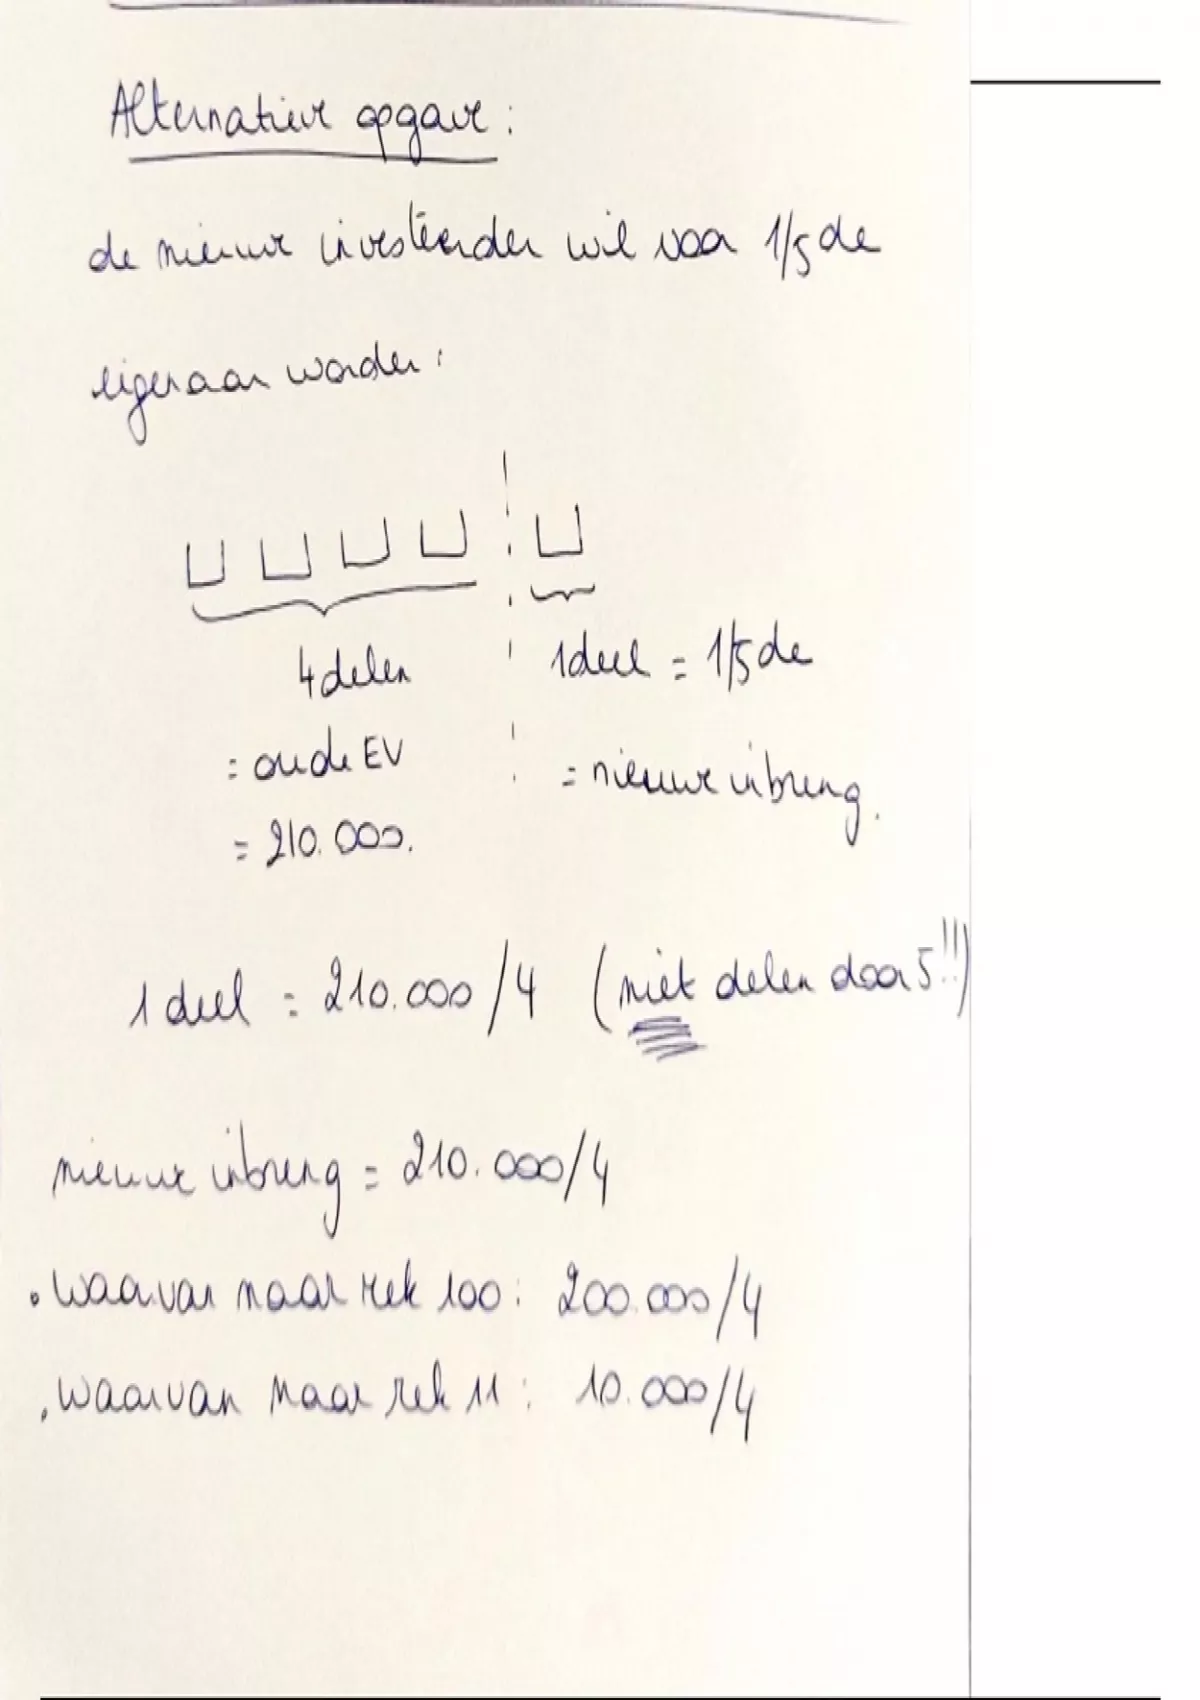 Alternatieve opgave:
de nieuwe investeerder wil voor 1/5 de
eigenaar worden:
4 delen
1 deel = 1/5 de
= oude EV
= nieuwe inbreng.
= 210.000.
1 deel = 210.000/4 (niet delen door 5!!)
nieuwe inbreng = 210.000/4
• waarvan naar rek 100: 200.000/4
• waarvan naar rek 11: 10.000/4